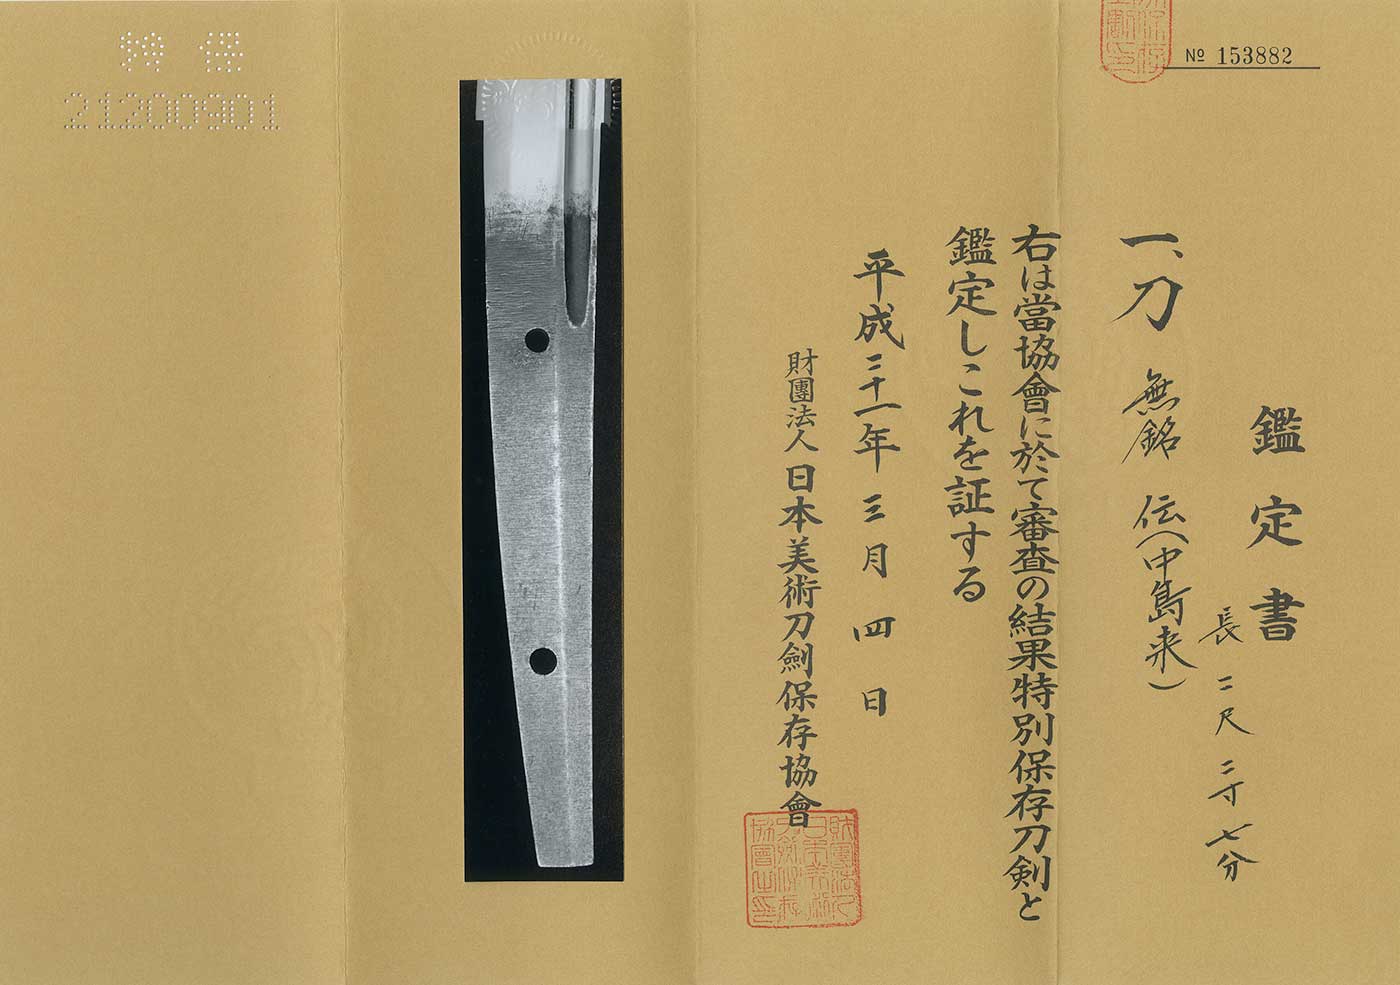 № 153882
鑑定書
長 二尺二寸七分
一、刀 無銘 伝(中島来)
右は當協會に於て審査の結果特別保存刀剣と
鑑定しこれを証する
平成二十一年三月四日
財團法人日本美術刀劍保存協會
特 保
21200901